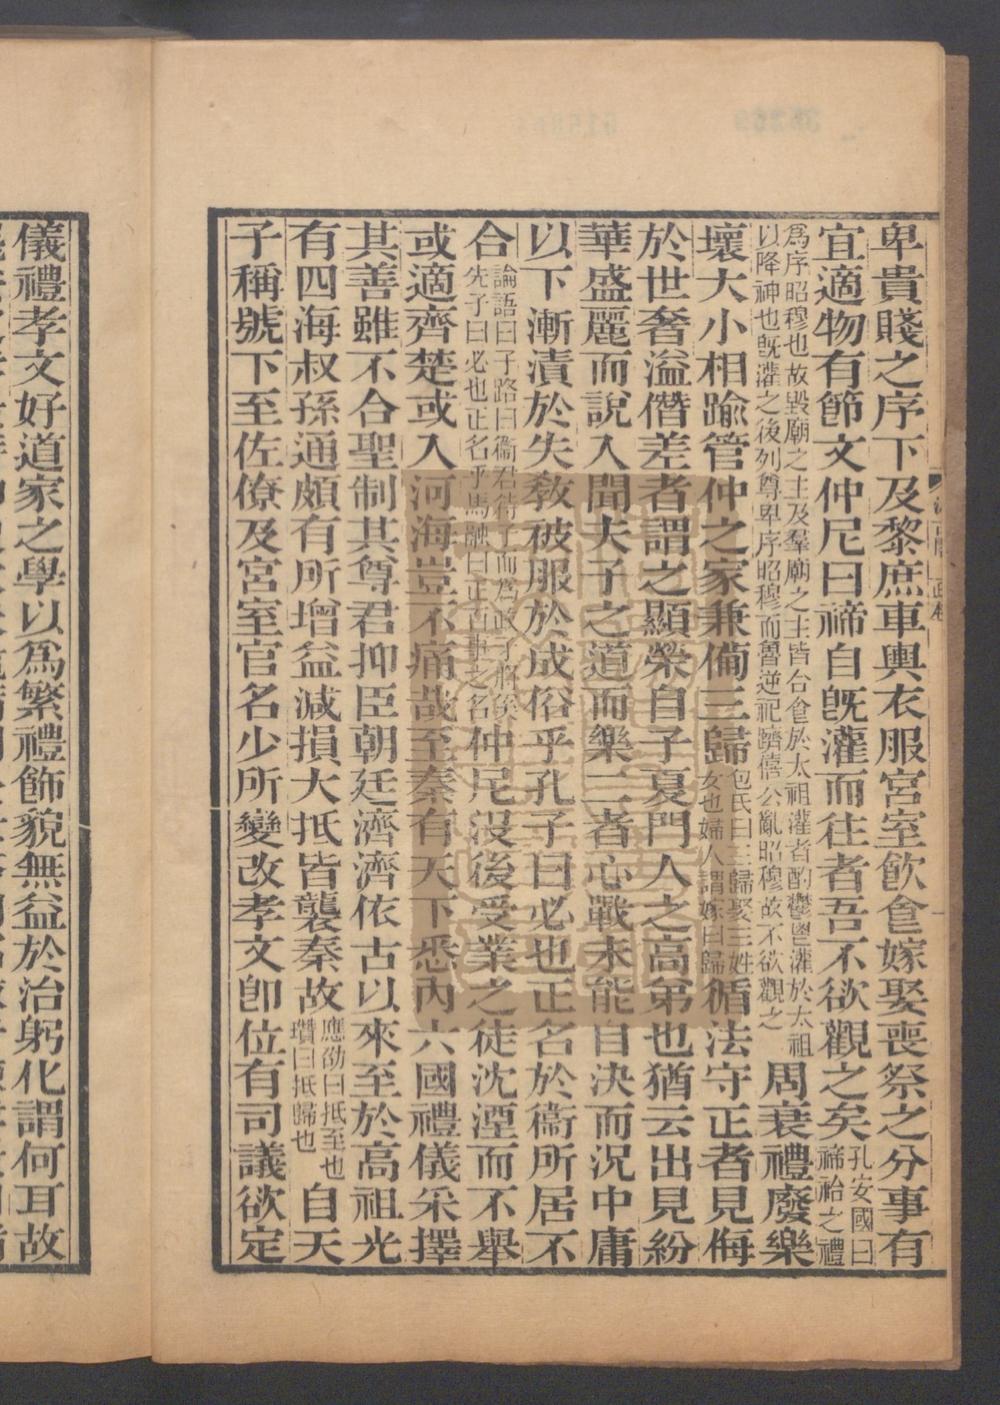 卑貴賤之序下及黎庶車輿衣服宮室飲食嫁娶喪祭之分事有
宜適物有節文仲尼曰禘自旣灌而往者吾不欲觀之矣孔安國曰禘祫之禮
爲序昭穆也故毀廟之主及羣廟之主皆合食於太祖灌者酌鬱鬯灌於太祖以降神也旣灌之後列尊卑序昭穆而魯逆祀躋僖公亂昭穆故不欲觀之周衰禮廢樂
壞大小相踰管仲之家兼備三歸包氏曰三歸娶三姓女也婦人謂嫁曰歸循法守正者見侮
於世奢溢僭差者謂之顯榮自子夏門人之高弟也猶云出見紛
華盛麗而說入聞夫子之道而樂二者心戰未能自決而況中庸
以下漸漬於失敎被服於成俗乎孔子曰必也正名於衞所居不
合論語曰子路曰衞君待子而爲政子將奚先子曰必也正名乎馬融曰正百事之名仲尼沒後受業之徒沈湮而不舉
或適齊楚或入河海豈不痛哉至秦有天下悉內六國禮儀采擇
其善雖不合聖制其尊君抑臣朝廷濟濟依古以來至於高祖光
有四海叔孫通頗有所增益減損大抵皆襲秦故應劭曰抵至也瓚曰抵歸也自天
子稱號下至佐僚及宮室官名少所變改孝文卽位有司議欲定
儀禮孝文好道家之學以爲繁禮飾貌無益於治躬化謂何耳故